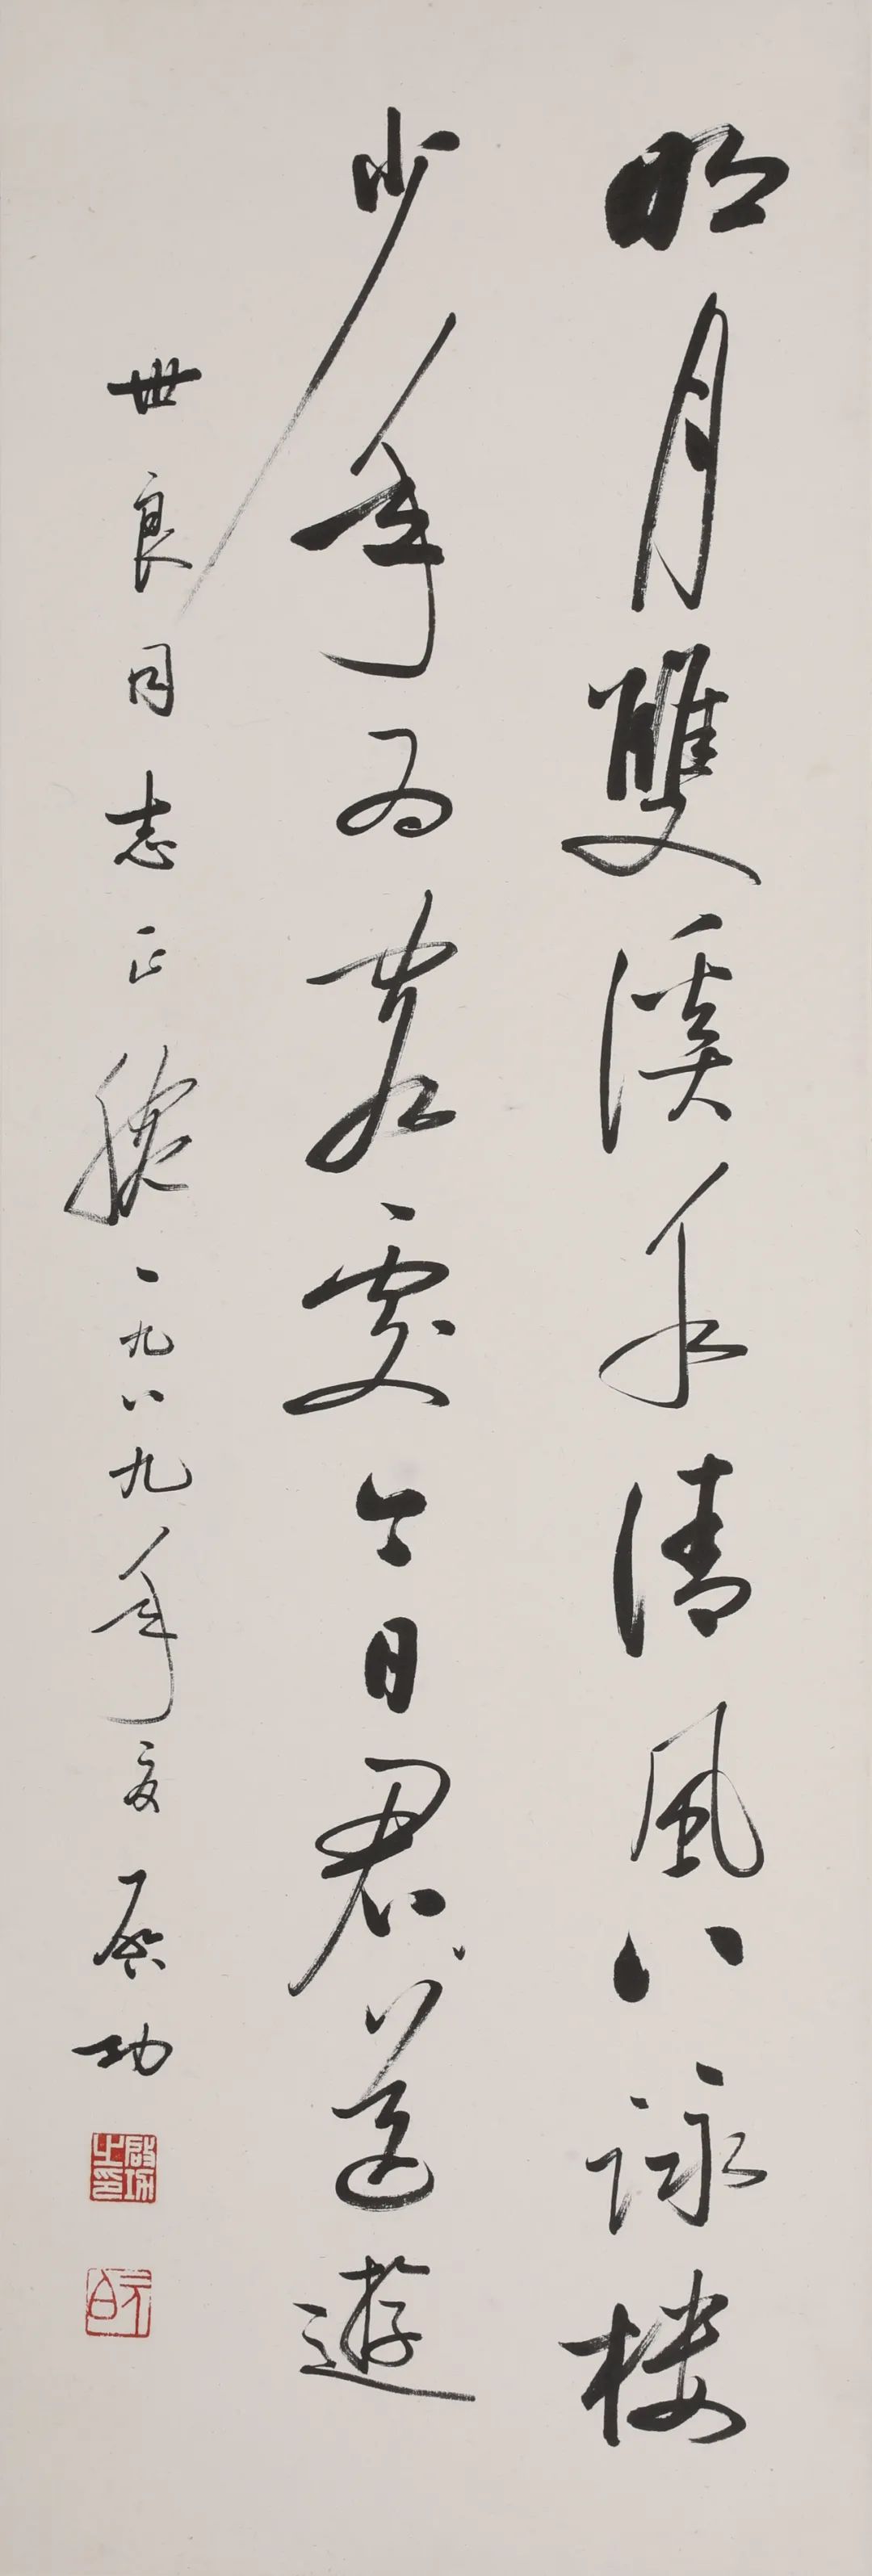 明月雙溪水清風八詠楼
少年为客處今日君送遊
世良同志正腕一九八九年夏启功
啟功之印
元白